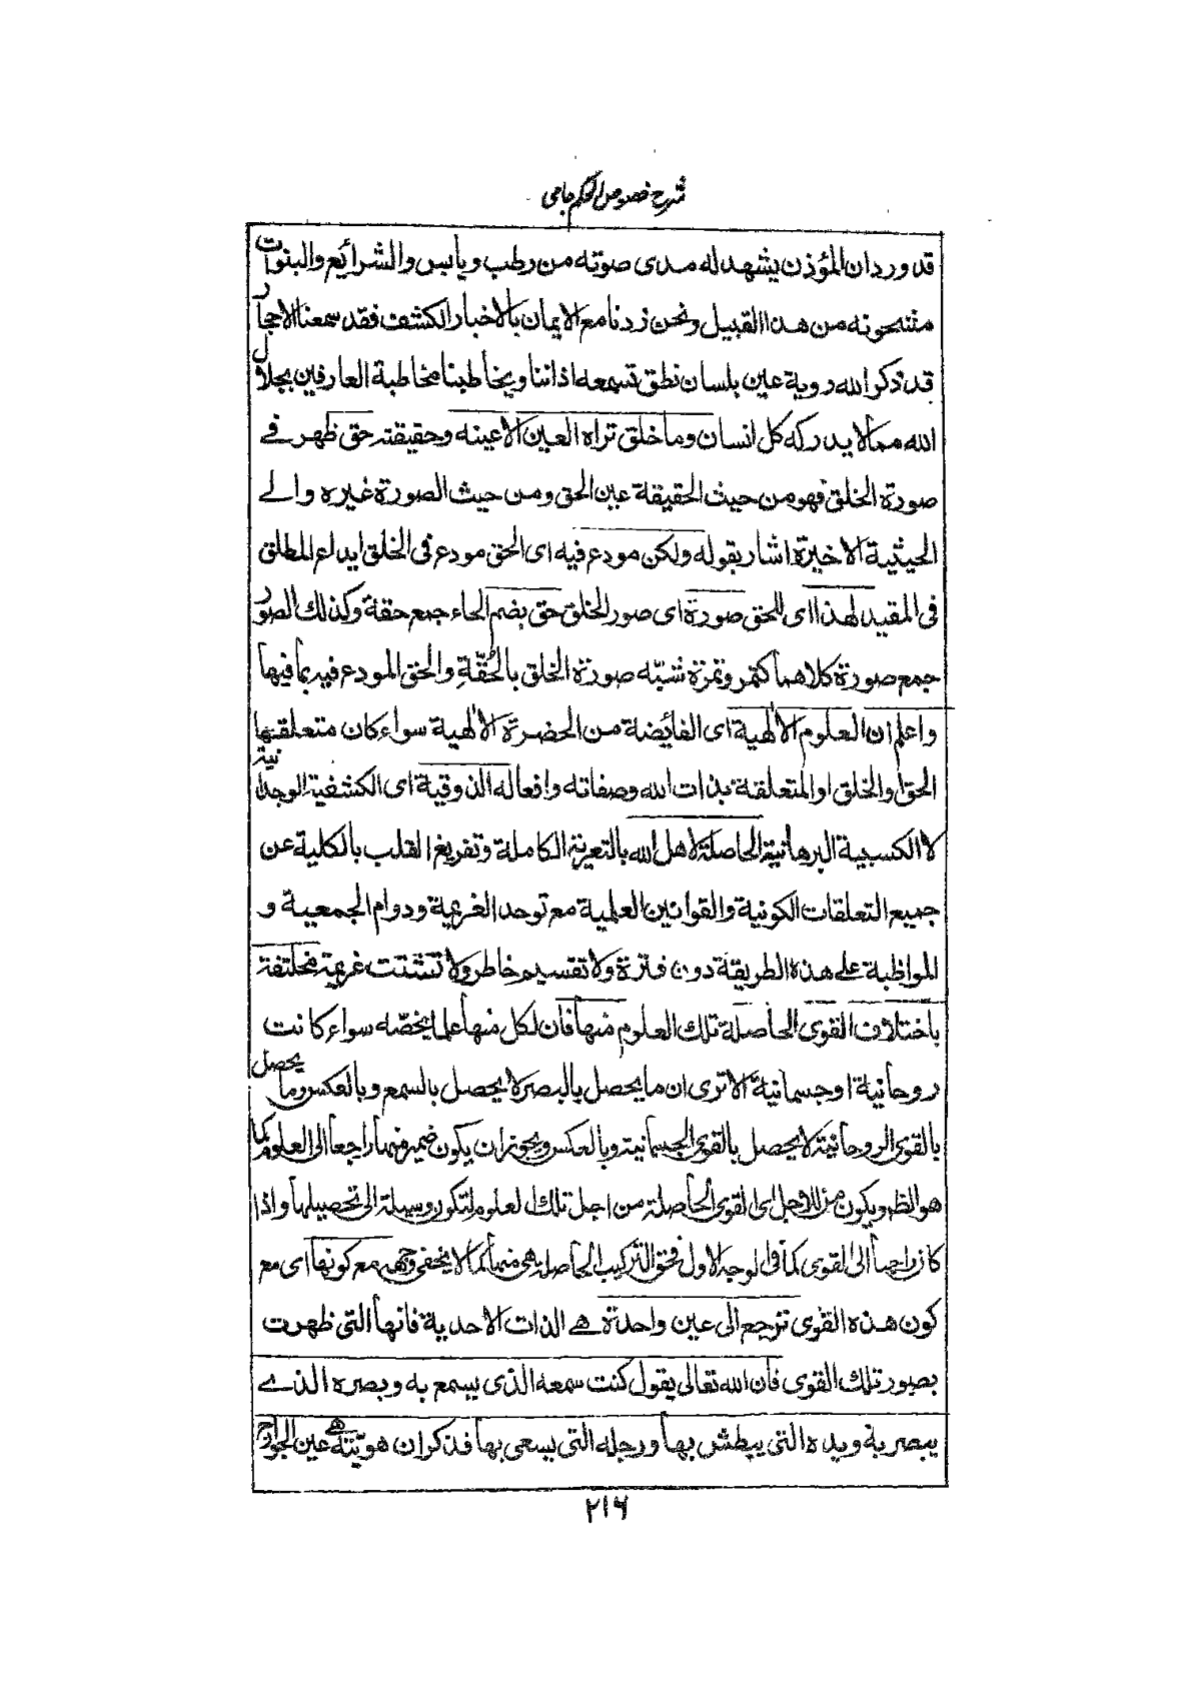 شرح فصوص الحكم جامی
قد ورد ان المؤذن يشهد له مدى صوته من رطب ويابس والشرائع والنبوات
مشحونة من هذا القبيل ونحن زدنا مع الايمان بالاخبار الكشف فقد سمعنا الاحجار
قد ذكر الله روية عين بلسان نطق تسمعه اذاننا ويخاطبنا مخاطبة العارفين بجلال
الله مما لا يدركه كل انسان وما خلق تراه العين الا عينه وحقيقته حق ظهر فے
صورة الخلق فهو من حيث الحقيقة عين الحق ومن حيث الصورة غيره والے
الحيثية الاخيرة اشار بقوله ولكن مودع فيه اى الحق مودع فى الخلق ايداع المطلق
فى المقيد لهذا اى للحق صورة اى صور الخلق حق بضم الحاء جمع حقة وكذلك الصور
جمع صورة كلاهما كتمر وتمرة شبّه صورة الخلق بالحُقّةِ والحق المودع فيه بما فيها
واعلم ان العلوم الالٰهية اى الفايضة من الحضرة الالٰهية سواء كان متعلقها
الحق او الخلق او المتعلقة بذات الله وصفاته وافعاله الذوقية اى الكشفية الوجدانية
لا الكسبية البرهانية الحاصلة لاهل الله بالتعرية الكاملة وتفريغ القلب بالكلية عن
جميع التعلقات الكونية والقوانين العلمية مع توحد العزيمة ودوام الجمعية و
المواظبة علے هذه الطريقة دون فترة ولا تقسيم خاطر ولا تشتت عزيمة مختلفة
باختلاف القوى الحاصلة تلك العلوم منها فان لكل منها علما يخصّه سواء كانت
روحانية او جسمانية الا ترى ان ما يحصل بالبصر لا يحصل بالسمع وبالعكس وما يحصل
بالقوى الروحانية لا يحصل بالقوى الجسمانية وبالعكس ويجوز ان يكون ضمير منها راجعا الى العلوم كما
هو الظ ويكون من للاجل اى القوى الحاصلة من اجل تلك العلوم لتكون وسيلة الى تحصيلها واذا
كان راجعا الى القوى كما فى الوجه الاول فحق التركيب الحاصلة هى منها كما لا يخفى وجهه مع كونها اى مع
كون هذه القوى ترجع الى عين واحدة هے الذات الاحدية فانها التى ظهرت
بصور تلك القوى فان الله تعالى يقول كنت سمعه الذى يسمع به وبصره الذے
يبصر به ويده التى يبطش بها ورجله التى يسعى بها فذكر ان هويّته هے عين الجوارح
٢١٦